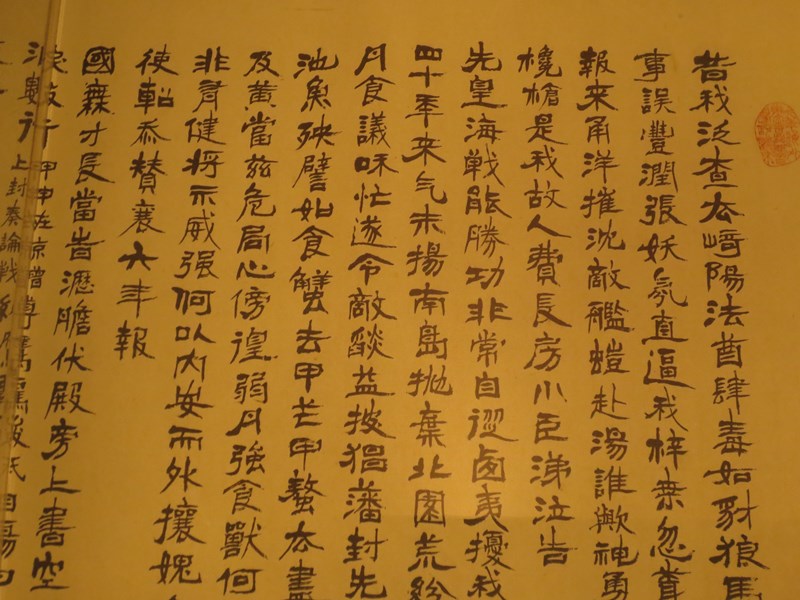 昔我泛查去崎陽法酋肆毒如豺狼馬
事誤豐潤張妖氛直逼我梓桒忽
報來甬洋摧沈敵艦螘赴湯誰歟神勇
欃槍是我故人費長房小臣涕泣告
先皇海戰能勝功非常自從鹵夷擾我
四十年來气未揚南島拋棄北園荒紛
月食議咊忙遂令敵燄益披猖藩封先
池魚殃譬如食蟹去甲芒甲螯去盡
及黃當茲危局心傍徨弱月強食獸何
非君健將示威强何以內安而外攘媿
使軺忝贊襄六年報
國無才長當昔瀝膽伏殿旁上書空
淚數行
甲申在京曾
上封奏論戰